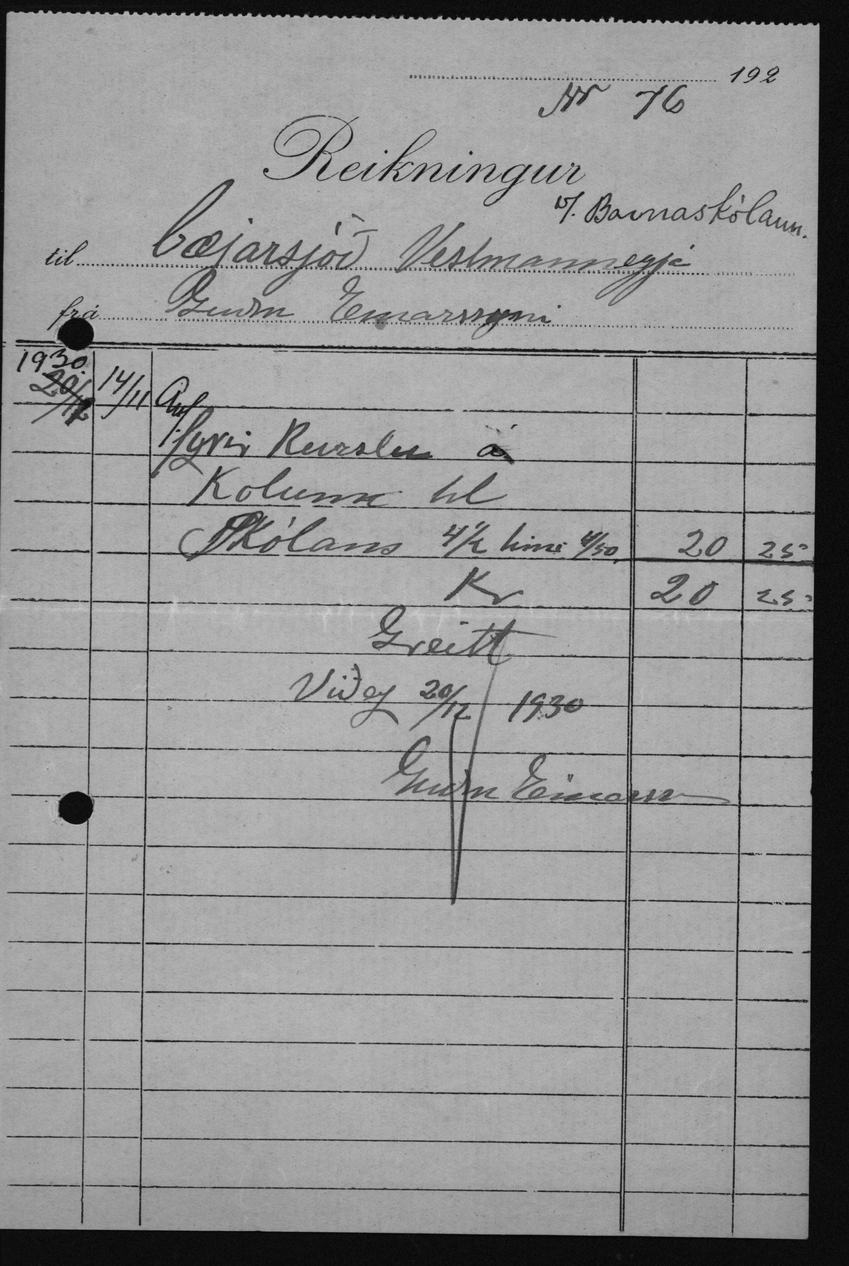 192
Nr 76
Reikningur
v/. Barnaskólann.
til Bæjarsjóð Vestmanneyja
frá Guðm Einarssyni
1930.
20/12 14/11
fyrir Keirslu á
Kolunum til
Skólans 4 1/2 tími 4/50 20 25
Kr 20 25
Greitt
Viðey 20/12 1930
Guðm Einarsson